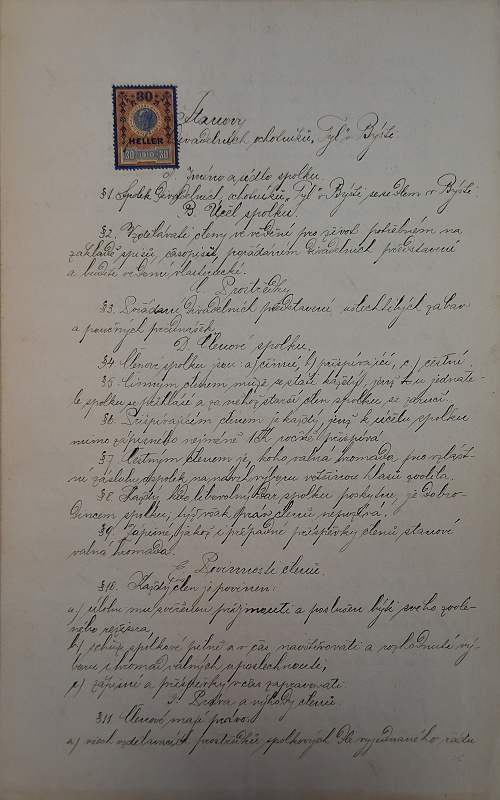 30
HELLER
30 1910 30
Stanovy
divadelních ochotníků „Tyl" v Býšti.
A. Jméno a sídlo spolku.
§1. Spolek divadelních ochotníků „Tyl" v Býšti, se sídlem v Býšti.
B. Účel spolku.
§2. Vzdělávati členy ve vědění pro život potřebném na
základě spisů, časopisů, pořádáním divadelních představení
a buditi vědomí vlastenecké.
C. Prostředky
§3. Pořádání divadelních představení, ušlechtilých zábav
a poučných přednášek
D. Členové spolku.
§4. Členové spolku jsou: a) činní b) přispívající, c) čestní.
§5. Činným členem může se státi každý, jenž u jednate-
le spolku se přihlásí a za něhož starší člen spolku se zaručí.
§6. Přispívajícím členem je každý, jenž k účelu spolku
mimo zápisného nejméně 1K ročně přispívá.
§7. Čestným členem je, koho valná hromada pro zvlášt-
ní zásluhy o spolek na návrh výboru většinou hlasů zvolila.
§8. Každý, kdo libovolný dar spolku poskytne, je dobro-
dincem spolku, týž však práv členů nepožívá.
§9. Zápisné, jakož i případné příspěvky členů stanoví
valná hromada.
E. Povinnosti členů.
§10. Každý člen je povinen:
a) úlohu mu svěřenou přijmouti a poslušen býti svého zvole-
ného režiséra,
b) schůze spolkové pilně a v čas navštěvovati a rozhodnutí vý-
boru i hromad valných uposlechnouti;
c) zápisné a příspěvky v čas zapravovati.
F. Práva a výhody členů.
§11. Členové mají právo:
a) všech vzdělávacích prostředků spolkových dle vyjednaného řádu